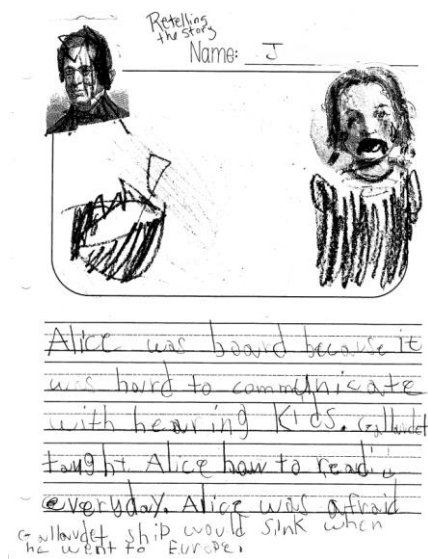 Retelling
the story
Name: J
Alice was board because it
was hard to commynicate
with hearing Kids. Gallaudet
taught Alice how to read
everyday. Alice was afraid
Gallaudet ship would sink when
he went to Europe.